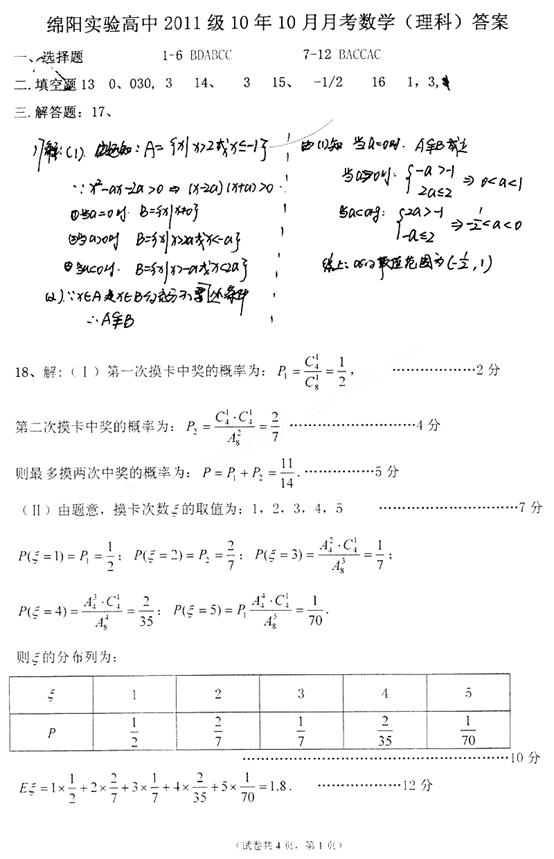 绵阳实验高中2011级10年10月月考数学（理科）答案
一、选择题 1-6 BDABCC 7-12 BACCAC
二.填空题13 0、030, 3 14、 3 15、 -1/2 16 1, 3,
三.解答题：17、
解:(1) 由题知: A={x|x>2或x≤-1}
∵x²-ax-2a²>0 ⇒ (x-2a)(x+a)>0
①当a=0时 B={x|x≠0}
②当a>0时 B={x|x>2a或x<-a}
③当a<0时. B={x|x>-a或x<2a}
(2) ∵x∈A是x∈B的充分不必要条件
∴A⫋B
由(1)知 当a=0时. A⫋B成立
当a>0时. {-a>-1 2a≤2 ⇒ 0<a<1
当a<0时: {2a>-1 -a≤2 ⇒ -1/2<a<0
综上: a的取值范围为(-1/2, 1)
18、解:（Ⅰ）第一次摸卡中奖的概率为: P₁ = C₄¹/C₈¹ = 1/2， ………………2分
第二次摸卡中奖的概率为: P₂ = C₄¹·C₄¹/A₈² = 2/7 ……………………4分
则最多摸两次中奖的概率为: P = P₁ + P₂ = 11/14. ……………5分
（Ⅱ）由题意，摸卡次数ξ的取值为: 1, 2, 3, 4, 5 ………………………7分
P(ξ=1) = P₁ = 1/2； P(ξ=2) = P₂ = 2/7； P(ξ=3) = A₄²·C₄¹/A₈³ = 1/7；
P(ξ=4) = A₄³·C₄¹/A₈⁴ = 2/35； P(ξ=5) = P₁ A₄⁴·C₄¹/A₈⁵ = 1/70.
则ξ的分布列为:
ξ 1 2 3 4 5
P 1/2 2/7 1/7 2/35 1/70
………………………………………………10分
Eξ = 1×1/2 + 2×2/7 + 3×1/7 + 4×2/35 + 5×1/70 = 1.8. ………………12分
（试卷共4页，第1页）